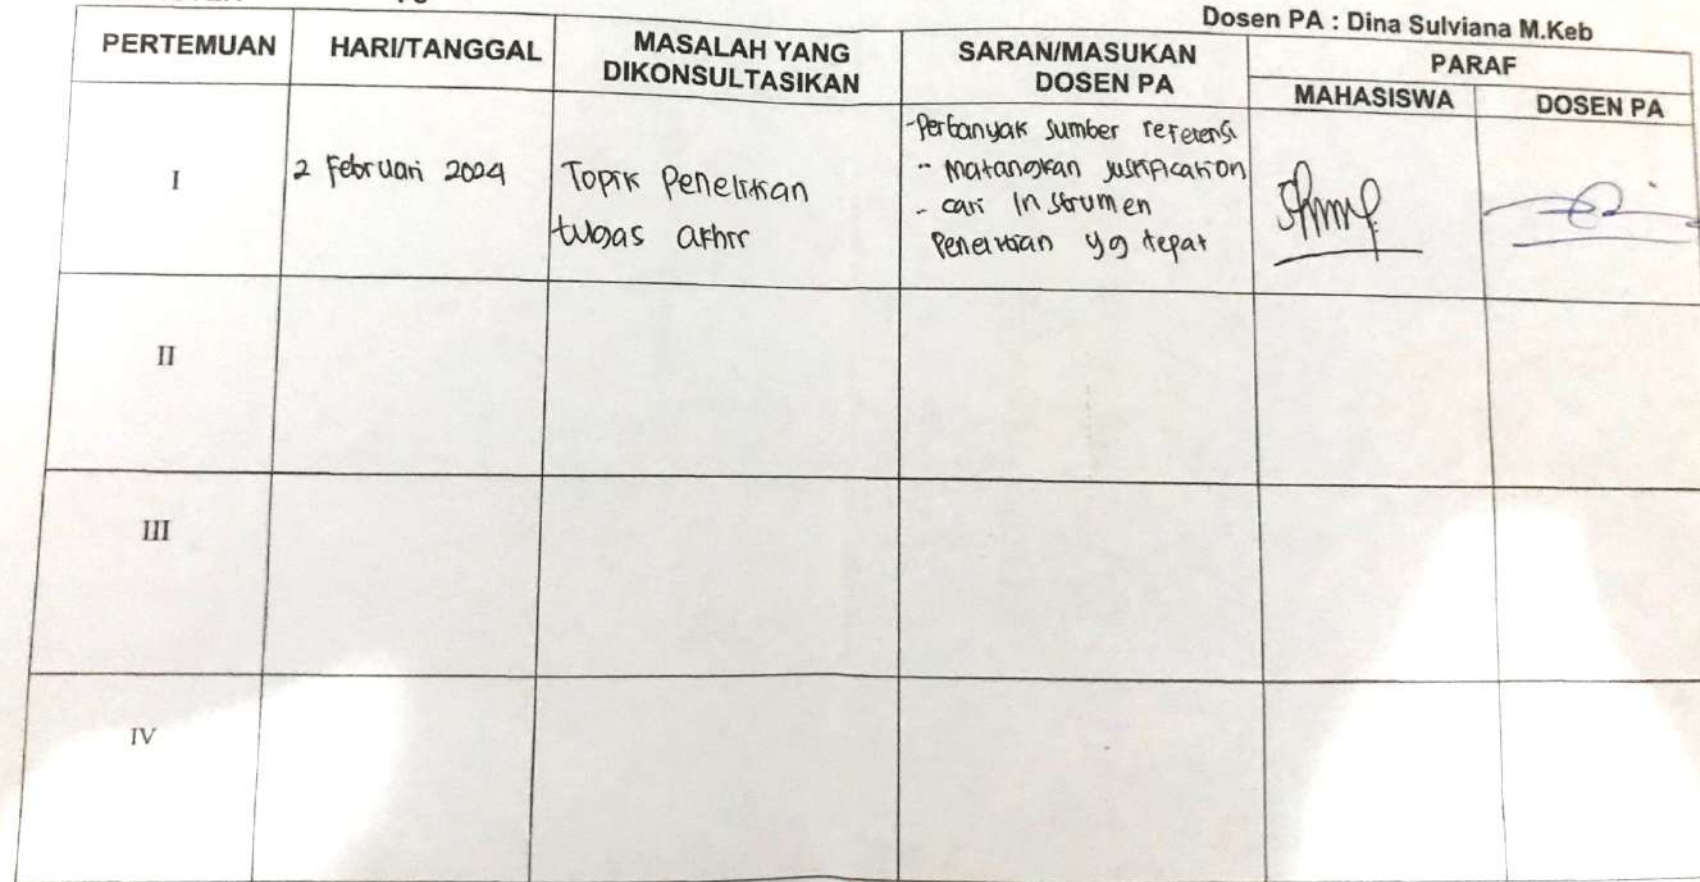 Dosen PA : Dina Sulviana M.Keb
PERTEMUAN
HARI/TANGGAL
MASALAH YANG
DIKONSULTASIKAN
SARAN/MASUKAN
DOSEN PA
PARAF
MAHASISWA
DOSEN PA
I
2 Februari 2024
Topik Penelitian
tugas akhir
-Perbanyak sumber referensi
- Matangkan justification
- cari Instrumen
Penelitian yg tepat
II
III
IV